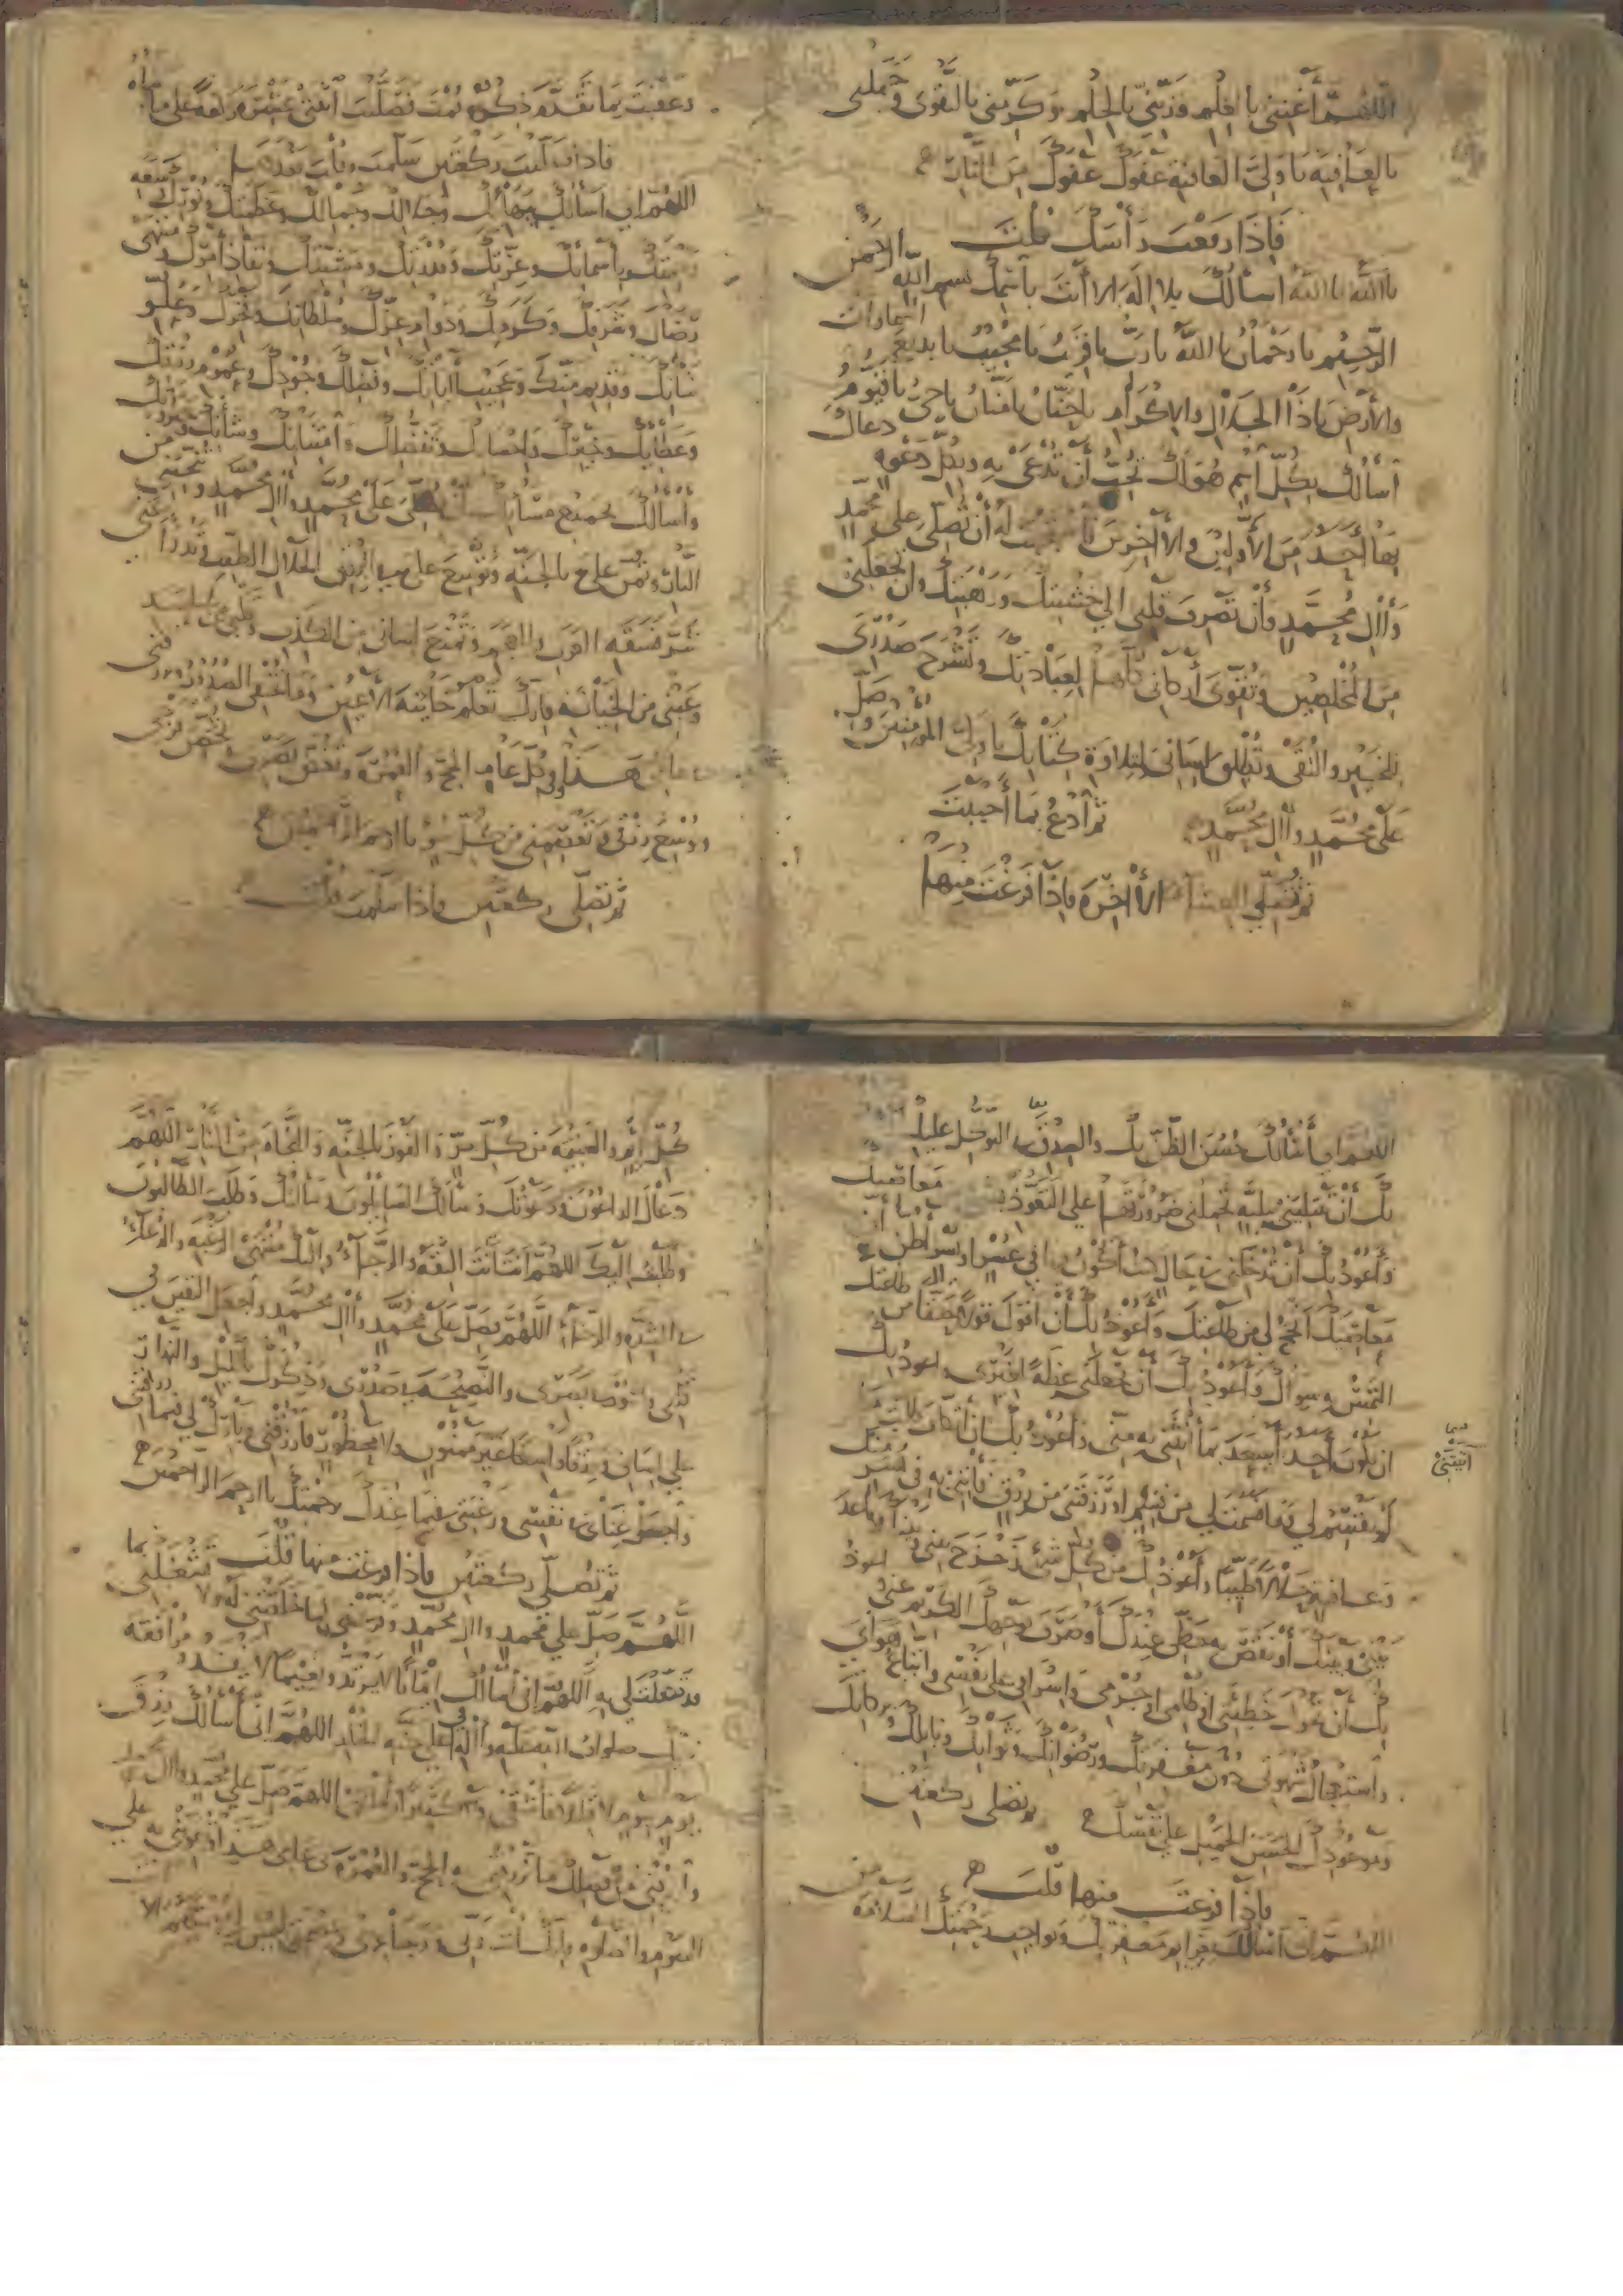 اللهُمَّ أَغْنِنِي بِالعِلْمِ وَزَيِّنِّي بِالحِلْمِ وَكَرِّمْنِي بِالتَّقْوَى وَجَمِّلْنِي
بِالعَافِيَةِ يَا وَلِيَّ العَافِيَةِ عَفْوَكَ عَفْوَكَ مِنَ النَّارِ
فَإِذَا رَفَعْتَ رَأْسَكَ قُلْتَ
يا اللهُ يا اللهُ اسألُكَ بلا إلهَ إلا أنتَ باسمِكَ بسم الله الرحمن
الرَّحِيْمِ يا رَحْمَانُ يا اللهُ يا رَبُّ يا قَرِيبُ يا مُجِيْبُ يا بديعَ السماوات
والأرضِ يا ذَا الجَلالِ والإكرامِ يا حَنَّانُ يا مَنَّانُ يا حَيُّ يا قَيُّومُ
أسألُكَ بِكلِّ اسْمٍ هُوَ لَكَ تُحِبُّ أَنْ تُدْعَى بِهِ وبكُلِّ دَعْوَةٍ دعاكَ
بِهَا أَحَدٌ مِنَ الأوّلينَ والآخِرِينَ لَهُ أن تُصَلّيَ على مُحمّدٍ
وَآلِ مُحَمَّدٍ وَأَنْ تَصْرِفَ قَلْبِي إلى خَشْيَتِكَ وَرَهْبَتِكَ وأن تَجْعَلَنِي
مِنَ المُخْلِصِينَ وَتُقَوِّيَ أَرْكَانِي كُلَّهَا لِعِبَادَتِكَ وَتَشْرَحَ صَدْرِي
لِلخَيْرِ والتُّقَى وَتُطْلِقَ لِسَانِي لِتِلاوَةِ كِتَابِكَ يا وَلِيَّ المُؤْمِنِينَ وَصَلِّ
عَلَى مُحَمَّدٍ وآلِ مُحَمَّدٍ ثم أدْعُ بِمَا أَحْبَبْتَ
ثم تُصَلِّي العشاء الأَخِرَةَ فَإِذَا فَرَغْتَ مِنْهَا
وعقبت بما تقدّم ذكره قمت فصلّيت
فإذا صليت ركعتين سلّمت وقلت بعدهما
اللهُمّ إني أسألك ببهائك وجلالك وجمالك وعظمتك ونورك وسعة
رحمتك وبأسمائك وعزّتك وقدرتك ومشيّتك ونفاذ أمرك ومنتهى
رضاك وشرفك وكرمك ودوام عزّك وسلطانك وفخرك وعلوّ
شأنك وقديم منّك وعجيب آياتك وفضلك وجودك وعموم رزقك
وعطائك وخيرك وإحسانك وتفضّلك وامتنانك وشأنك
وأسألك بجميع مسائلك تصلّي على محمد وآل محمد وتنجّيني من
النار وتمنّ عليّ بالجنة وتوسّع عليّ من الرزق الحلال الطيب وتدرأ عني
شرّ فسقة العرب والعجم وتمنع لساني من الكذب وقلبي من الحسد
وعيني من الخيانة فإنك تعلم خائنة الأعين وما تخفي الصدور
هذا وفي كلّ عام الحجّ والعمرة وتغضّ بصري وتحصّن فرجي
وتوسّع رزقي وتعصمني من كلّ سوء يا أرحم الراحمين
ثم تصلّي ركعتين فإذا سلّمت قلت
اللهُمّ إني أسألك حسن الظنّ بك والصدق في التوكّل عليك
بك أن تبتليني ببليّة تحملني ضرورتها على التعوّذ معاصيك
وأعوذ بك أن تدخلني في حال كنت أكون في عسر أو يسر أظن
معاصيك أنجح لي من طاعتك وأعوذ بك أن أقول قولا حقّا من طاعتك
ألتمس به سواك وأعوذ بك أن تجعلني عظة لغيري وأعوذ بك
أن يكون أحد أسعد بما آتيتني به منّي وأعوذ بك أن
فيما آتيتَنِي
لم تقسم لي وما قسمت لي من قسم أو رزقتني من رزق فأتني به في يسر منك
وعافية حلالا طيّبا وأعوذ بك من كلّ شيء زحزح بيني وبينك أو باعد
بيني وبينك أو نقص به حظّي عندك أو صرف بوجهك الكريم عنّي وأعوذ
بك أن تحول خطيئتي أو ظلمي أو جرمي وإسرافي على نفسي واتباع هواي
واستعجال شهوتي دون مغفرتك ورضوانك وثوابك ونائلك وبركاتك
وموعودك الحسن الجميل على نفسك ثم تصلي ركعتين
فإذا فرغت منها قلت
اللهُمّ إني أسألك بعزائم مغفرتك وبواجب رحمتك السلامة من
كُلِّ إثم والغنيمة من كُلّ برّ والفوز بالجنّة والنجاة من النّار اللهمّ
دعاك الداعون ودعوتك وسألك السائلون وسألتك وطلب الطالبون
وطلبت إليك اللهمّ أنت الثقة والرجاء وإليك منتهى الرغبة والدعاء
في الشدّة والرخاء اللهمّ فصلّ على محمّد وآل محمّد واجعل اليقين في
قلبي والنور في بصري والنصيحة في صدري وذكرك بالليل والنهار
على لساني ورزقا واسعا غير ممنون ولا محظور فارزقني وبارك لي فيما رزقتني
واجعل غناي في نفسي ورغبتي فيما عندك برحمتك يا أرحم الراحمين
ثم تصلّي ركعتين فإذا فرغت منها قلت
اللهمّ صلّ على محمد وآل محمّد وفرّغني لما خلقتني له ولا تشغلني بما
قد تكفّلت لي به اللهمّ إني أسألك إيمانا لا يرتدّ ونعيما لا ينفد ومرافقة
نبيّك صلوات الله عليه وآله في أعلى جنة الخلد اللهمّ إني أسألك رزق
يوم بيوم لا قليلا فأشقى ولا كثيرا فأطغى اللهمّ صلّ على محمّد وآل محمد
وارزقني من فضلك ما ترزقني به الحجّ والعمرة في عامي هذا وتقوّيني به على
الصوم والصلاة فإنك أنت ربّي ورجائي وعصمتي ليس لي معتصم إلا